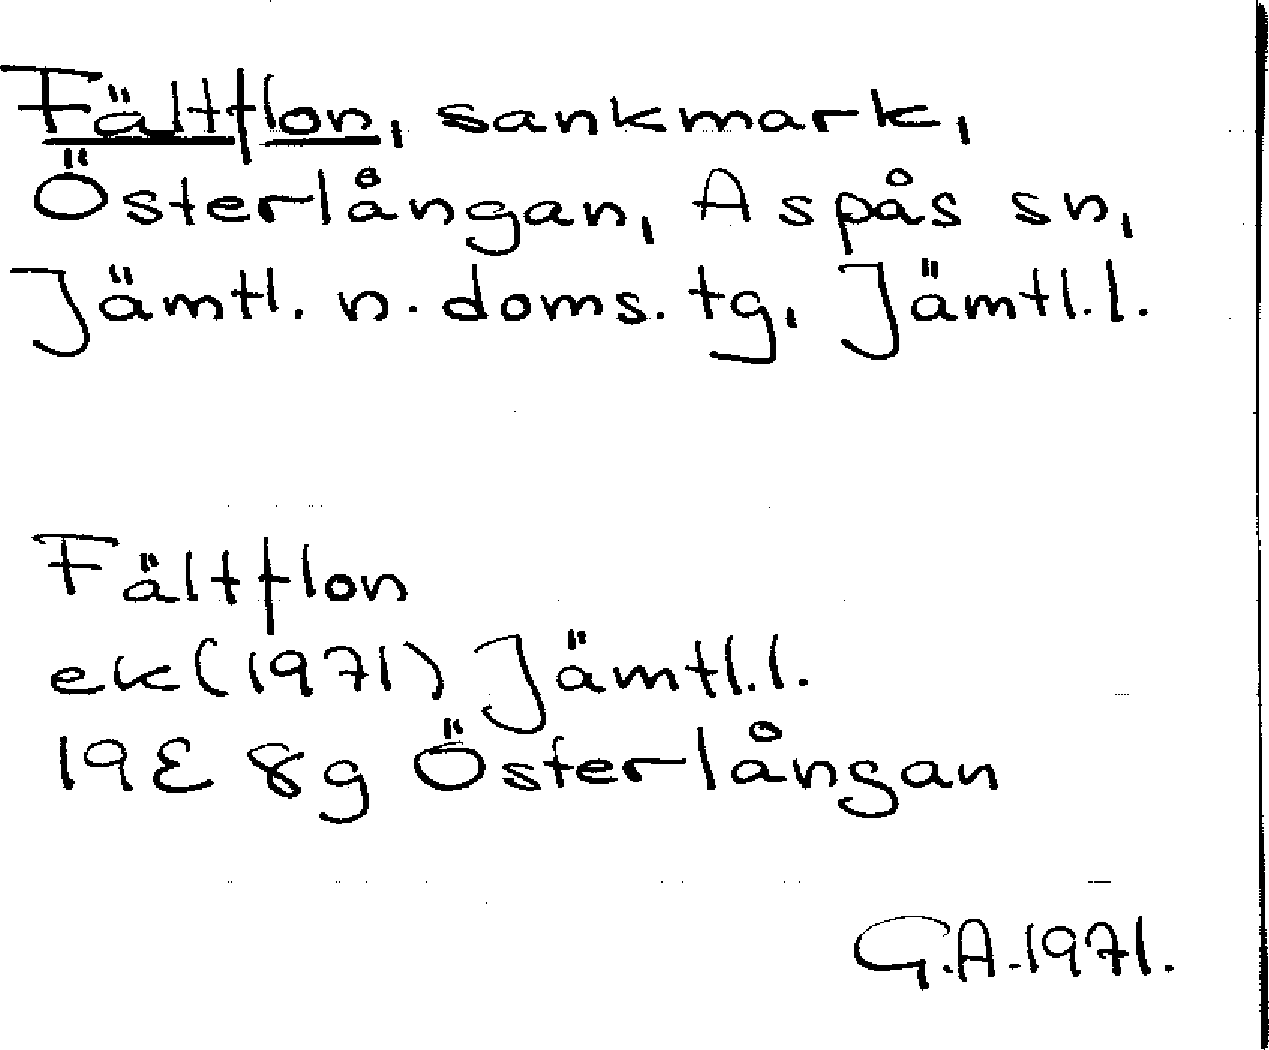 Fältflon, sankmark,
Österlångan, Aspås sn,
Jämtl. n. doms. tg, Jämtl.l.
Fältflon
ek(1971) Jämtl.l.
19E 8g Österlångan
G.A.1971.